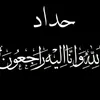 حداد
لله وإنا إليه راجعون